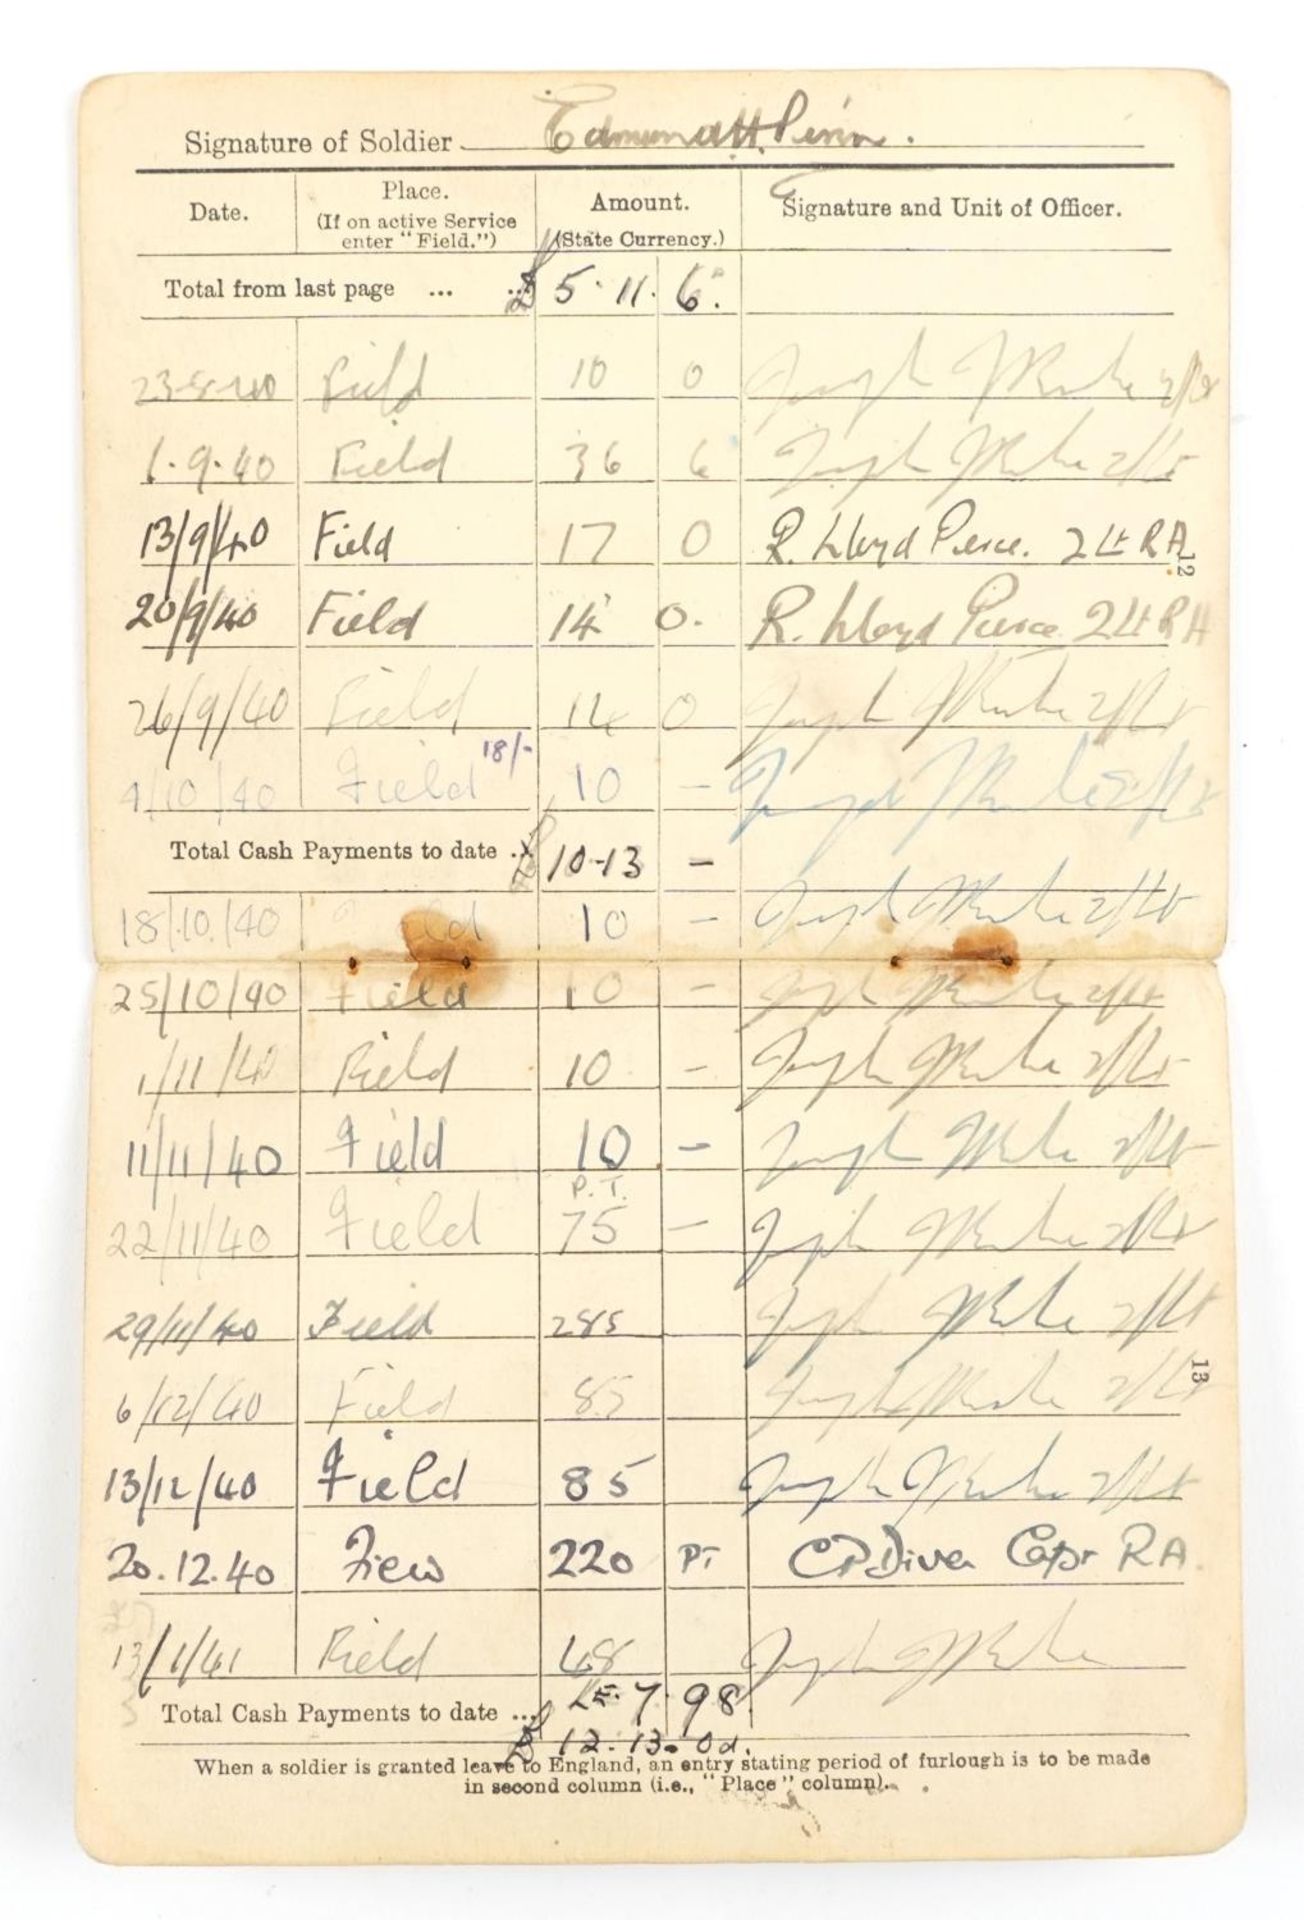 Signature of Soldier Edmund H. Penn.
Date. Place. (If on active Service enter "Field.") Amount. (State Currency.) Signature and Unit of Officer.
Total from last page ... £ 5 · 11 · 6.
23-8-40 Field 10 0 Joseph 2/Lt
1·9·40 Field 36 6 Joseph 2/Lt
13/9/40 Field 17 0 R. Lloyd Pierce. 2 Lt RA
12
20/9/40 Field 14 0. R. Lloyd Pierce 2 Lt RA
26/9/40 Field 14 0 Joseph 2/Lt
18/-
4/10/40 Field 10 – Joseph 2/Lt
Total Cash Payments to date ... £ 10-13 –
18/10/40 Field 10 – Joseph 2/Lt
25/10/40 Field 10 – Joseph 2/Lt
1/11/40 Field 10 – Joseph 2/Lt
11/11/40 Field 10 – Joseph 2/Lt
P.T.
22/11/40 Field 75 – Joseph 2/Lt
29/11/40 Field 285 Joseph 2/Lt
13
6/12/40 Field 85 Joseph 2/Lt
13/12/40 Field 85 Joseph 2/Lt
20.12.40 Field 220 PT Capt RA.
13/1/41 Field 48 Joseph
Total Cash Payments to date ... 7 · 98
£ 12-13-0d.
When a soldier is granted leave to England, an entry stating period of furlough is to be made
in second column (i.e., "Place" column).